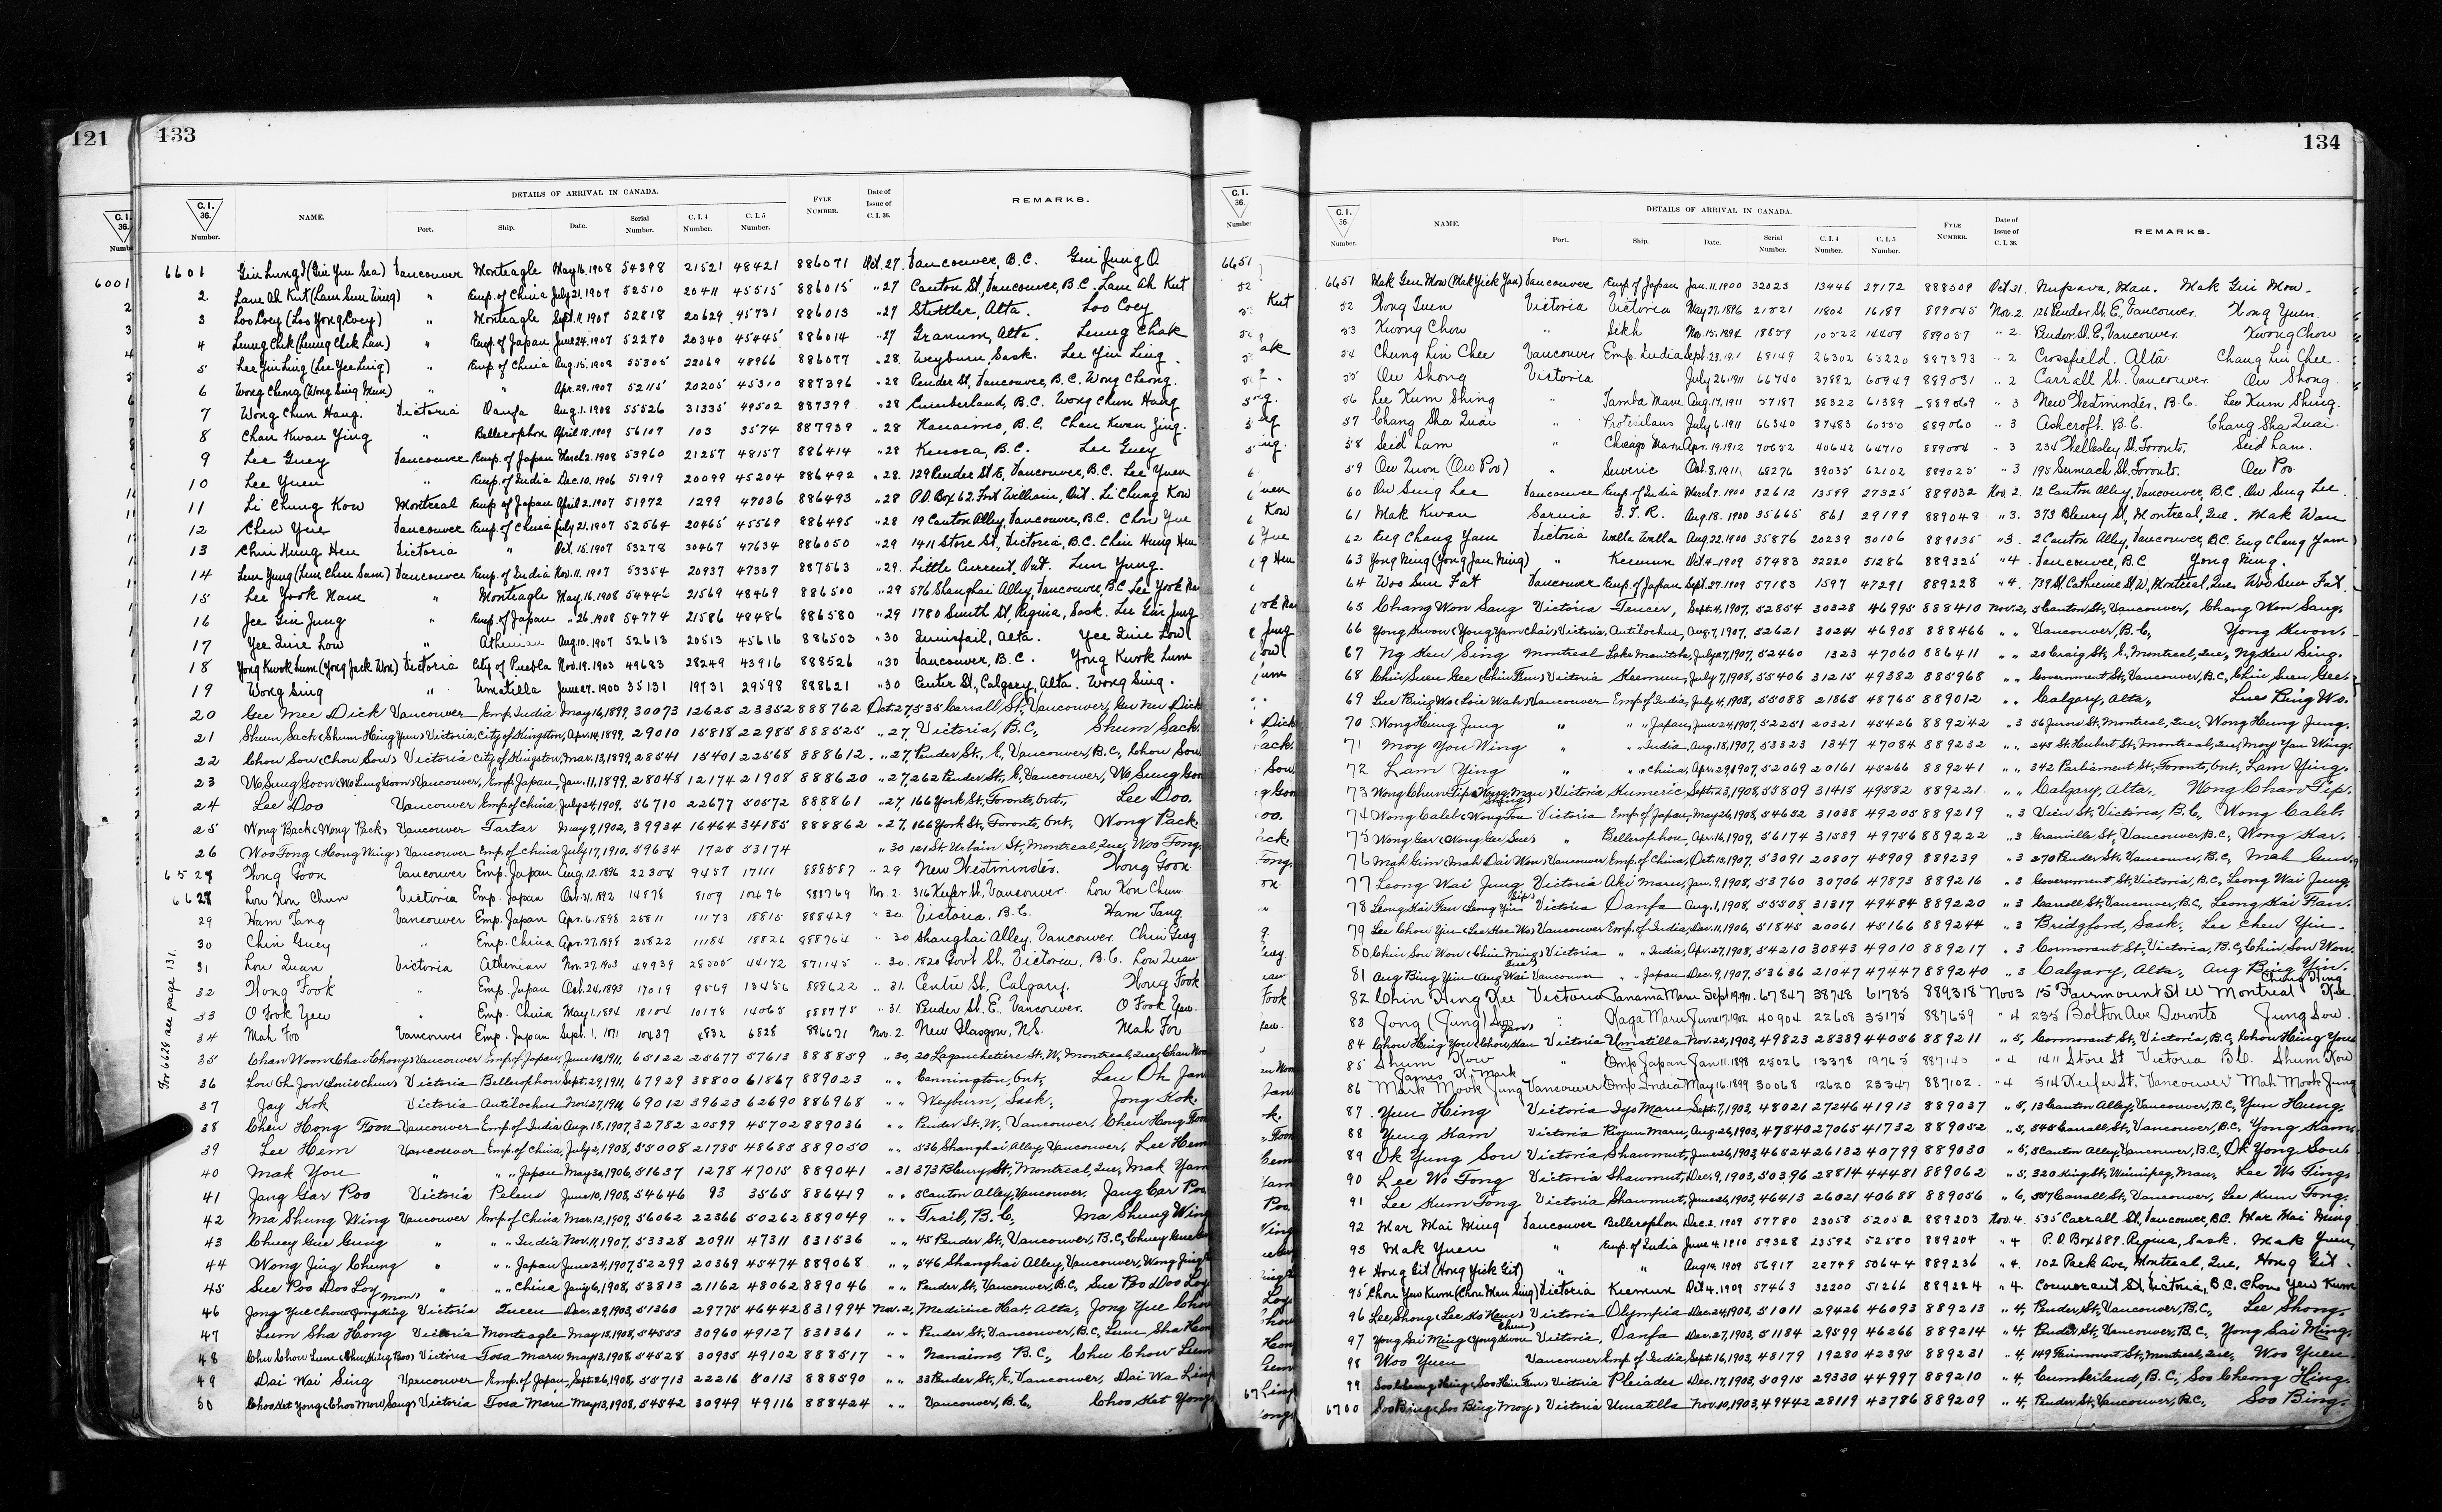 121
133
DETAILS OF ARRIVAL IN CANADA.
C.I. 36. Number. NAME. Port. Ship. Date. Serial Number. C.I.4 Number. C.I.5 Number. FYLE NUMBER. Date of Issue of C.I.36. REMARKS.
6001
6601 Vancouver Monteagle May 16, 1908 54398 21521 48421 886071 Oct. 27. Vancouver, B.C.
2 Lam Ah Kut (Lam Sum Wing) " Emp. of China July 21, 1907 52510 20411 45515 886015 " 27 Canton St, Vancouver, B.C. Lam Ah Kut
3 Loo Coey (Loo Yong Coey) " Monteagle Sept. 11, 1907 52818 20629 45731 886013 " 27 Stettler, Alta. Loo Coey
4 " Emp. of Japan June 24, 1907 52270 20340 45445 886014 " 27 Granum, Alta. Leung Chak
5 Lee Yin Ling (Lee Yee Ling) " Emp of China Aug. 15, 1908 55305 22069 48966 886077 " 28. Weyburn Sask. Lee Yin Ling
6 Wong Cheong (Wong Sing Mun) " " Apr. 29, 1907 52115 20205 45310 887396 " 28 Pender St, Vancouver, B.C. Wong Cheong.
7 Wong Chun Hang. Victoria Oanfa Aug. 1, 1908 55526 31335 49502 887399 " 28 Cumberland, B.C. Wong Chun Hang
8 Chan Kwan Ying " Bellerophon April 18, 1909 56107 103 3574 887939 " 28 Nanaimo, B.C. Chan Kwan Jing.
9 Lee Guey Vancouver Emp. of Japan March 2, 1908 53960 21257 48157 886414 " 28 Kenora, B.C. Lee Guey
10 Lee Yuen " Emp. of India Dec. 10, 1906 51919 20099 45204 886492 " 28. 129 Pender St E, Vancouver, B.C. Lee Yuen
11 Li Chung Kow Montreal Emp of Japan April 2, 1907 51972 1299 47036 886493 " 28 P.O. Box 62. Fort William, Ont. Li Chung Kow
12 Chew Yue Vancouver Emp. of China July 21, 1907 52564 20465 45569 886495 " 28 19 Canton Alley, Vancouver, B.C. Chew Yue
13 Chin Hung Hen Victoria " Oct. 15, 1907 53278 30467 47634 886050 " 29 1411 Store St, Victoria, B.C. Chin Hung Hen
14 Lum Yung (Lum Chew Sam) Vancouver Emp. of India Nov. 11, 1907 53354 20937 47337 887563 " 29. Little Current, Ont. Lum Yung.
15 Lee York Nam " Monteagle May 16, 1908 54446 21569 48469 886500 " 29 576 Shanghai Alley, Vancouver, B.C. Lee York Na
16 Jee Gin Jung " Emp. of Japan " 26, 1908 54774 21586 48486 886580 " 29 1780 Smith St, Regina, Sask.
17 Yee Quie Low " Athenian Aug. 10, 1907 52613 20513 45616 886503 " 30 Innisfail, Alta. Yee Quie Low
18 Yong Kwok Lum (Yong Jack Won) Victoria City of Puebla Nov. 19, 1903 49683 28249 43916 888526 " 30 Vancouver, B.C. Yong Kwok Lum
19 Wong Sing " Umatilla June 27, 1900 35131 19731 29598 888621 " 30 Center St, Calgary, Alta. Wong Sing.
20 Gee Mee Dick Vancouver Emp India May 16, 1899, 30073 12625 23352 888762 Oct. 27, 535 Carrall St, Vancouver, Gee Mee Dick
21 Shum Sack (Shum Hing Yen) Victoria, City of Kingston, Apr. 14, 1899, 29010 15818 22985 888525 " 27, Victoria, B.C., Shum Sack.
22 Chou Sow (Chou Sow) Victoria City of Kingston, Mar. 13, 1899, 28541 15401 22568 888612 " 27, Pender St., E, Vancouver, B.C., Chou Sow
23 Wo Sung Goon (Wo Lung Goon) Vancouver, Emp. Japan, Jan. 11, 1899, 28048 12174 21908 888620 " 27, 262 Pender St., E, Vancouver, Wo Sung Goo
24 Lee Doo Vancouver Emp. of China July 24, 1909, 56710 22677 50572 888861 " 27, 166 York St, Toronto, Ont., Lee Doo.
25 Wong Back (Wong Pack) Vancouver Tartar May 9, 1902, 39934 16464 34185 888862 " 27, 166 York St, Toronto, Ont., Wong Pack.
26 Woo Tong (Hong Wing) Vancouver Emp. of China July 17, 1910. 59634 1725 53174 " 30 121 St Urbain St, Montreal, Que, Woo Tong
6527 Wong Goon Vancouver Emp. Japan Aug. 12, 1896 22304 9457 17111 888587 " 29 New Westminster. Wong Goon
6628 Low Kon Chun Victoria Emp. Japan Oct. 31, 1892 14878 8109 10496 888769 Nov. 2. 316 Keefer St., Vancouver Low Kon Chun
29 Ham Tang Vancouver Emp. Japan Apr. 6, 1898 25811 11173 18815 888429 " 30. Victoria. B.C. Ham Tang
30 Chin Guey " Emp. China Apr. 27, 1898 25822 11184 18826 888764 " 30 Shanghai Alley. Vancouver Chin Guey
31 Low Quan Victoria Athenian Nov. 27, 1903 49939 28505 44172 871145 " 30. 1820 Govt St. Victoria, B.C. Low Quan
32 Wong Fook " Emp. Japan Oct. 24, 1893 17019 9569 13456 888622 " 31. Centre St., Calgary. Wong Fook
33 O Fook Yew " Emp. China May 1, 1894 18104 10178 14065 888775 " 31. Pender St. E. Vancouver. O Fook Yew
34 Mah Foo Vancouver Emp. Japan Sept. 1, 1891 10437 4832 6828 886671 Nov. 2. New Glasgow, N.S. Mah Foo
For 6628 see page 131.
35 Chan Woon (Chan Chong) Vancouver Emp. of Japan, June 10, 1911, 65122 25677 57613 888859 " 30, 20 Lagauchetiere St, W, Montreal, Que, Chan Woo
36 Victoria Bellerophon Sept. 29, 1911, 67929 38800 61867 889023 " " Cannington, Ont., Lau Oh Jan
37 Jay Kok Victoria Antilochus Nov. 27, 1911, 69012 39623 62690 886968 " " Weyburn, Sask., Jong Kok.
38 Chew Hong Foon Vancouver Emp. of India Aug. 18, 1907, 32782 20599 45702 889036 " " Pender St., W, Vancouver, Chew Hong Foon
39 Lee Hem Vancouver Emp. of China, July 2, 1908, 55008 21785 48685 889050 " " 536 Shanghai Alley, Vancouver, Lee Hem
40 Mak You " " " Japan May 30, 1906, 51637 1278 47015 889041 " 31 373 Bleury St, Montreal, Que, Mak Yam
41 Jang Gar Poo Victoria Peleus June 10, 1908, 54646 93 3565 886419 " " 5 Canton Alley, Vancouver, Jang Car Poo
42 Ma Shung Wing Vancouver Emp. of China Mar. 12, 1909, 56062 22366 50262 889049 " " Trail, B.C., Ma Shung Wing
43 Chuey Gue Gung " " " India Nov. 11, 1907, 53328 20911 47311 831536 " " 45 Pender St, Vancouver, B.C,
44 Wong Jing Chung " " " Japan June 24, 1907, 52299 20369 45474 889068 " " 546 Shanghai Alley, Vancouver, Wong Jing
45 Sue Poo Doo Loy " " " China Jany 6, 1908, 53813 21162 48062 889046 " " Pender St, Vancouver, B.C, Sue Poo Doo Loy
46 Jong Yue Chow (Jong King Mon) Victoria Queen Dec. 29, 1903, 51360 29775 46442 831994 Nov. 2, Medicine Hat, Alta., Jong Yue Chow
47 Lum Sha Hong Victoria Monteagle May 15, 1908, 54553 30960 49127 831361 " " Pender St, Vancouver, B.C, Lum Sha Hon
48 Chu Chow Lum (Chu King Boo) Victoria Tosa Maru May 13, 1908, 54528 30935 49102 888517 " " Nanaimo, B.C., Chu Chow Lum
49 Dai Wai Sing Vancouver Emp. of Japan, Sept. 26, 1908, 55713 22216 50113 888590 " " 33 Pender St., E, Vancouver, Dai Wa Ling
50 Choo Ket Yong (Choo Mow Sang) Victoria Tosa Maru May 13, 1908, 54542 30949 49116 888424 " " Vancouver, B.C., Choo Ket Yong
134
DETAILS OF ARRIVAL IN CANADA.
C.I. 36. Number. NAME. Port. Ship. Date. Serial Number. C.I.4 Number. C.I.5 Number. FYLE NUMBER. Date of Issue of C.I.36. REMARKS.
6651 Mak Gen Mow (Mak Yick Jan) Vancouver Emp. of Japan Jan. 11, 1900 32023 13446 27172 888509 Oct 31. Nupava, Man. Mak Gui Mow.
52 Wong Quen Victoria Victoria May 27, 1896 21821 11802 16189 889045 Nov. 2 126 Pender St. E, Vancouver. Wong Yuen.
53 Kwong Chow " Sikh Nov. 15, 1894 18859 10522 14409 889057 " 2. Pender St. E, Vancouver. Kwong Chow
54 Chung Lin Chee Vancouver Emp. India Sept. 23, 191 68149 26302 63220 887373 " 2 Crossfield. Alta Chang Lin Chee.
55 Ow Shong Victoria July 26, 1911 66740 37882 60949 889031 " 2 Carrall St. Vancouver. Ow Shong.
56 Lee Kum Shing " Tamba Maru Aug. 17, 1911 57187 38322 61389 889069 " 3 New Westminster, B.C. Lee Kum Shing.
57 Chang Sha Quai " Protesilaus July 6, 1911 66340 37483 60550 889060 " 3 Ashcroft. B.C. Chang Sha Quai.
58 Seid Lam " Chicago Maru Apr. 19, 1912 70652 40642 64710 889004 " 3 234 Wellesley St, Toronto. Seid Lam.
59 Ow Quon (Ow Poo) " Suveric Oct. 8, 1911, 68276 39035 62102 889025 " 3 195 Sumach St, Toronto. Ow Poo
60 Ow Sing Lee Vancouver Emp. of India March 7, 1900 32612 13599 27325 889032 Nov. 2. 12 Canton Alley, Vancouver, B.C. Ow Sing Lee
61 Mak Kwan Sarnia G.T.R. Aug. 18, 1900 35665 861 29199 889048 " 3. 373 Bleury St, Montreal, Que. Mak Wan
62 Eug Chang Yam Victoria Walla Walla Aug 22, 1900 35876 20239 30106 889035 " 3. 2 Canton Alley, Vancouver, B.C. Eug Chang Yam
63 Yong Ning (Yong Jan Ning) " Keemun Oct 4, 1909 57483 32220 51286 889225 " 4. Vancouver, B.C. Yong Ning.
64 Woo Sun Fat Vancouver Emp. of Japan Sept. 27, 1909 57183 1597 47291 889228 " 4. 739 St. Catherine St. W, Montreal, Que. Woo Sun Fat.
65 Chang Won Sang Victoria Teucer, Sept. 4, 1907, 52854 30328 46995 888410 Nov. 2, 5 Canton St., Vancouver, Chang Won Sang.
66 Yong Kwon (Yong Yam Chai) Victoria, Antilochus, Aug. 7, 1907, 52621 30241 46908 888466 " " Vancouver, B.C., Yong Kwon.
67 Ng Ken Sing Montreal Lake Manitoba, July 27, 1907, 52460 1323 47060 886411 " " 20 Craig St., E, Montreal, Que, Ng Ken Sing.
68 Chin Suen Gee (Chin Fun) Victoria Keemun, July 7, 1908, 55406 31215 49382 885968 " " Government St, Vancouver, B.C, Chin Suen Gee.
69 Lue Bing Wo (Loie Wah) Vancouver Emp. of India, July 4, 1908, 55088 21865 48765 889012 " " Calgary, Alta., Lue Bing Wo.
70 Wong Hing Jung " " " Japan, June 24, 1907, 52251 20321 45426 889242 " 3 56 Jurou St, Montreal, Que, Wong Hung Jung.
71 Moy You Wing " " " India, Aug. 18, 1907, 53323 1347 47084 889232 " " 245 St. Hubert St, Montreal, Que, Moy Yau Wing.
72 Lam Ying " " " China, Apr. 29, 1907, 52069 20161 45266 889241 " " 342 Parliament St, Toronto, Ont., Lam Ying.
73 Wong Chum Tip (Wong Mau Shing) Victoria Kumeric, Sept. 23, 1908, 55809 31415 49582 889221 " " Calgary, Alta., Wong Chan Tip.
74 Wong Caleb (Wong Fou) Victoria Emp. of Japan, May 26, 1908, 54652 31038 49205 889219 " 3 View St, Victoria, B.C., Wong Caleb.
75 Wong Gar (Wong Gee Sue) " Bellerophon, Apr. 16, 1909, 56174 31589 49756 889222 " 3 Granville St, Vancouver, B.C, Wong Kar.
76 Mah Gin (Mah Dai Won) Vancouver Emp. of China, Oct. 15, 1907, 53091 20807 45909 889239 " 3 270 Pender St, Vancouver, B.C, Mah Gun.
77 Leong Wai Jung Victoria Aki Maru, Jan. 9, 1908, 53760 30706 47873 889216 " 3 Government St, Victoria, B.C, Leong Wai Jung.
78 Leong Kai Fan Victoria Oanfa Aug. 1, 1908, 55508 31317 49484 889220 " 3 Carrall St, Vancouver, B.C, Leong Kai Fan.
79 Lee Chou Yin (Lee Hee Wo) Vancouver Emp. of India, Dec. 11, 1906, 51845 20061 45166 889244 " 3 Bridgford, Sask., Lee Chew Yin.
80 Chin Sou Won (Chin Ming) Victoria " " India, Apr. 27, 1908, 54210 30843 49010 889217 " 3 Cormorant St, Victoria, B.C, Chin Sou Won.
81 Aug Bing Yin (Aug Wai Sue) Vancouver " " Japan Dec. 9, 1907, 53636 21047 47447 889240 " 3 Calgary, Alta., Aug Bing Yin.
82 Chin King Kee Victoria Panama Maru Sept 19, 1911. 67847 38748 61785 889318 Nov 3 15 Fairmount St W Montreal Chong King Kee
83 Jong (Jung) Sow " Kaga Maru June 17, 1902 40904 22608 35175 887659 " 4 235 Bolton Ave Toronto Jung Sow
84 Chow Hing You (Chow Kan Yan) Victoria Umatilla Nov. 25, 1903, 49823 28389 44056 889211 " 5, Cormorant St, Victoria, B.C, Chow Hing You
85 Shum Kow " Emp Japan Jan 11, 1898 25026 13378 19765 887145 " 4 1411 Store St Victoria B.C. Shum Kow
James K. Mark
86 Mark Mook Jung Vancouver Emp India May 16, 1899 30068 12620 23347 887102 " 4 514 Keefer St, Vancouver Mah Mook Jung
87 Yuen Hing Victoria Iyo Maru Sept. 7, 1903, 48021 27246 41913 889037 " 5, 13 Canton Alley, Vancouver, B.C, Yun Hung.
88 Yung Kam Victoria Riojun Maru, Aug. 26, 1903, 47840 27065 41732 889052 " 5, 545 Carrall St, Vancouver, B.C, Yong Kam.
89 Ok Yung Sou Victoria Shawmut, June 26, 1903, 46524 26132 40799 889030 " 5, 5 Canton Alley, Vancouver, B.C, Ok Yong Sou.
90 Lee Wo Tong Victoria Shawmut, Dec. 9, 1903, 50396 28814 44481 889062 " 5, 320 King St, Winnipeg, Man., Lee Wo Ting.
91 Lee Kum Tong Victoria Shawmut, June 26, 1903, 46413 26021 40688 889056 " 6, 557 Carrall St, Vancouver, Lee Kum Tong.
92 Mar Mai Ming Vancouver Bellerophon Dec. 2, 1909 57780 23058 52052 889203 Nov. 4. 535 Carrall St, Vancouver, B.C. Mar Mai Ming
93 Mak Yuen " Emp. of India June 4, 1910 59328 23592 52580 889204 " 4 P.O. Box 689. Regina, Sask. Mak Yuen
94 Hong Git (Hong Yick Git) " " Aug 14, 1909 56917 22749 50644 889236 " 4. 102 Park Ave, Montreal, Que, Hong Git.
95 Chow Yew Kum (Chou Mun Sing) Victoria Keemun Oct 4, 1909 57463 32200 51266 889224 " 4 Cormorant St, Victoria, B.C. Chow Yew Kum
96 Lee Shong (Lee Ko Hem) Victoria Olympia Dec. 24, 1903, 51011 29426 46093 889213 " 4, Pender St, Vancouver, B.C., Lee Shong.
97 Yong Sai Ming (Yong Kwou Chun) Victoria, Oanfa Dec. 27, 1903, 51184 29599 46266 889214 " 4, Pender St, Vancouver, B.C, Yong Sai Ming.
98 Woo Yuen Vancouver Emp. of India, Sept. 16, 1903, 48179 19280 42395 889231 " 4, 149 Fairmount St, Montreal, Que, Woo Yuen.
99 Soo Chong Hing (Soo Hin Fun) Victoria Pleiades Dec. 17, 1903, 50915 29330 44997 889210 " 4, Cumberland, B.C, Soo Chong Hing.
6700 Soo Bing (Soo Bing Moy) Victoria Umatilla Nov. 10, 1903, 49442 28119 43786 889209 " 4, Pender St, Vancouver, B.C, Soo Bing.